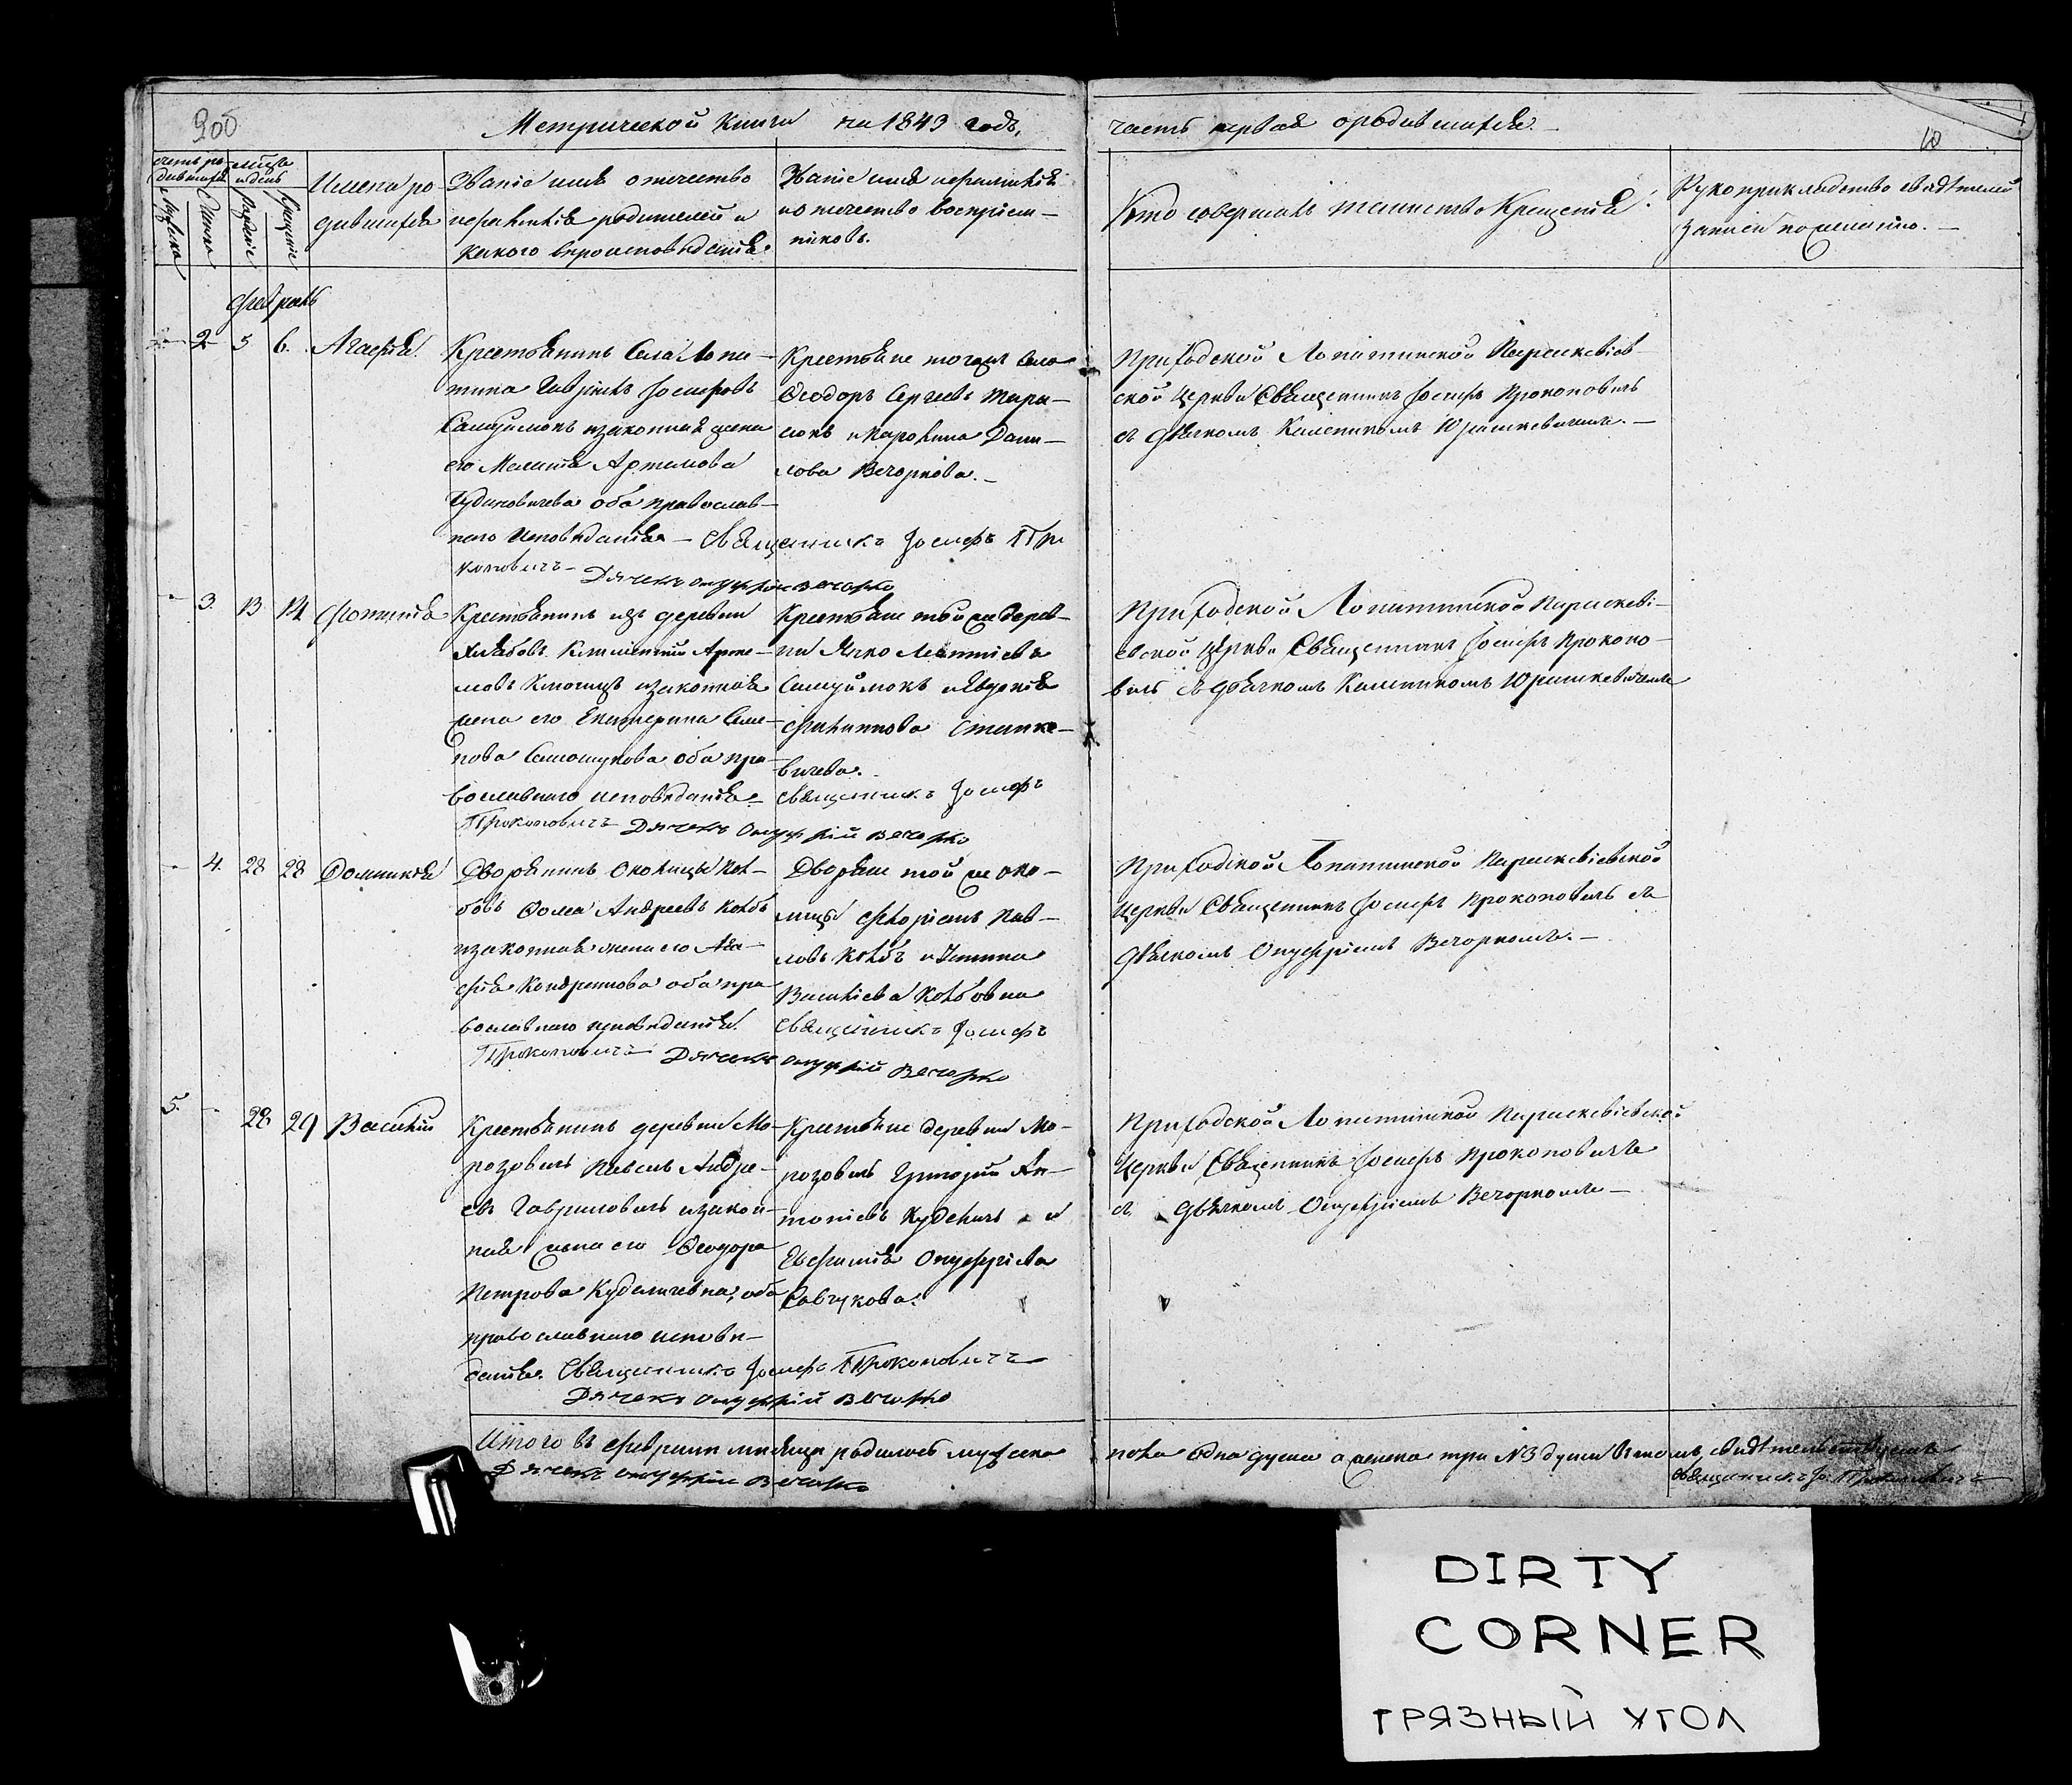 200
Метрической Книги на 1843 годъ,
часть первая о родившихся.
10
счетъ ро-
дившихся
мѣсяцъ
и день
Мужска
Женска
Рожденіе
Крещеніе
Имена ро
дившихся
Званіе имя отечество
и фамилія родителей и
какого вѣроисповѣданія.
Званіе имя и фамилія
и отечество воспріем-
никовъ.
Кто совершалъ таинство Крещенія
Рукоприкладство свидѣтелей
записи по желанію.
Февраль
2 5 6. Агафія.
Крестьянинъ Села Лопа-
тина Гаврiилъ Іосифовъ
Самуйликъ и законная жена
его Меланія Артемова
оба православ-
наго исповѣданія - Священникъ Іосифъ Про
коповичъ - Дячекъ Онуфрій Вечорко
Крестьяне тогоже села
Ѳеодоръ Сергеевъ Тара-
сюкъ и Каролина Дани-
лова Вечоркова.
Приходской Лопатинской Параскевіев-
ской Церкви Священникъ Іосифъ Прокоповичъ
съ дьячкомъ Каленикомъ Юрашкевичемъ.
3. 13 14 Фотинія
Крестьянинъ изъ деревни
Хлябовъ Климентій Арте-
мовъ и законная
жена его Екатерина Семе-
нова оба пра-
вославнаго исповѣданія.
Крестьяне той же дерев-
ни Янко Матѳіевъ
Самуйликъ и Евдокія
Филиппова Станке-
вичева.
Священникъ Іосифъ
Прокоповичъ Дячекъ Онуфрій Вечорко
Приходской Лопатинской Параскеві-
евской Церкви Священникъ Іосифъ Прокопо-
вичъ съ дьячкомъ Каленикомъ Юрашкевичемъ
4. 28 28 Домникія
Дворянинъ Околицы Кол-
бовъ Ѳома Андреевъ Колбъ
и законная жена его Ага-
фія Кондратова оба пра
вославнаго исповѣданія.
Дворяне той же око-
лицы Флоріанъ Пав-
ловъ Колбъ и Устина
Василіева Колбовна
Священникъ Іосифъ
Прокоповичъ Дячекъ Онуфрій Вечорко
Приходской Лопатинской Параскевіевской
Церкви Священникъ Іосифъ Прокоповичъ съ
дьячкомъ Онуфріемъ Вечоркомъ.
5. 28 29 Василій
Крестьянинъ деревни Мо-
розовичъ Павелъ Андре-
евъ Гавриловичъ и закон-
ная жена его Ѳеодора
Петрова Куделичевна, оба
православнаго исповѣ-
данія. Священникъ Іосифъ Прокоповичъ
Дячекъ Онуфрій Вечорко
Крестьяне деревни Мо-
розовичъ Григорій Ан-
тоніевъ Куделичъ и
Евфимія Онуфріева
Савчукова.
Приходской Лопатинской Параскевіевской
Церкви Священникъ Іосифъ Прокоповичъ
съ дьячкомъ Онуфріемъ Вечоркомъ
Итого въ февралѣ мѣсяцѣ родилось мужеска
пола одна душа а женска три №3 души въ томъ свидѣтельствуемъ
Дячекъ Онуфрій Вечорко
Священникъ Іо. Прокоповичъ
DIRTY
CORNER
ГРЯЗНЫЙ УГОЛ